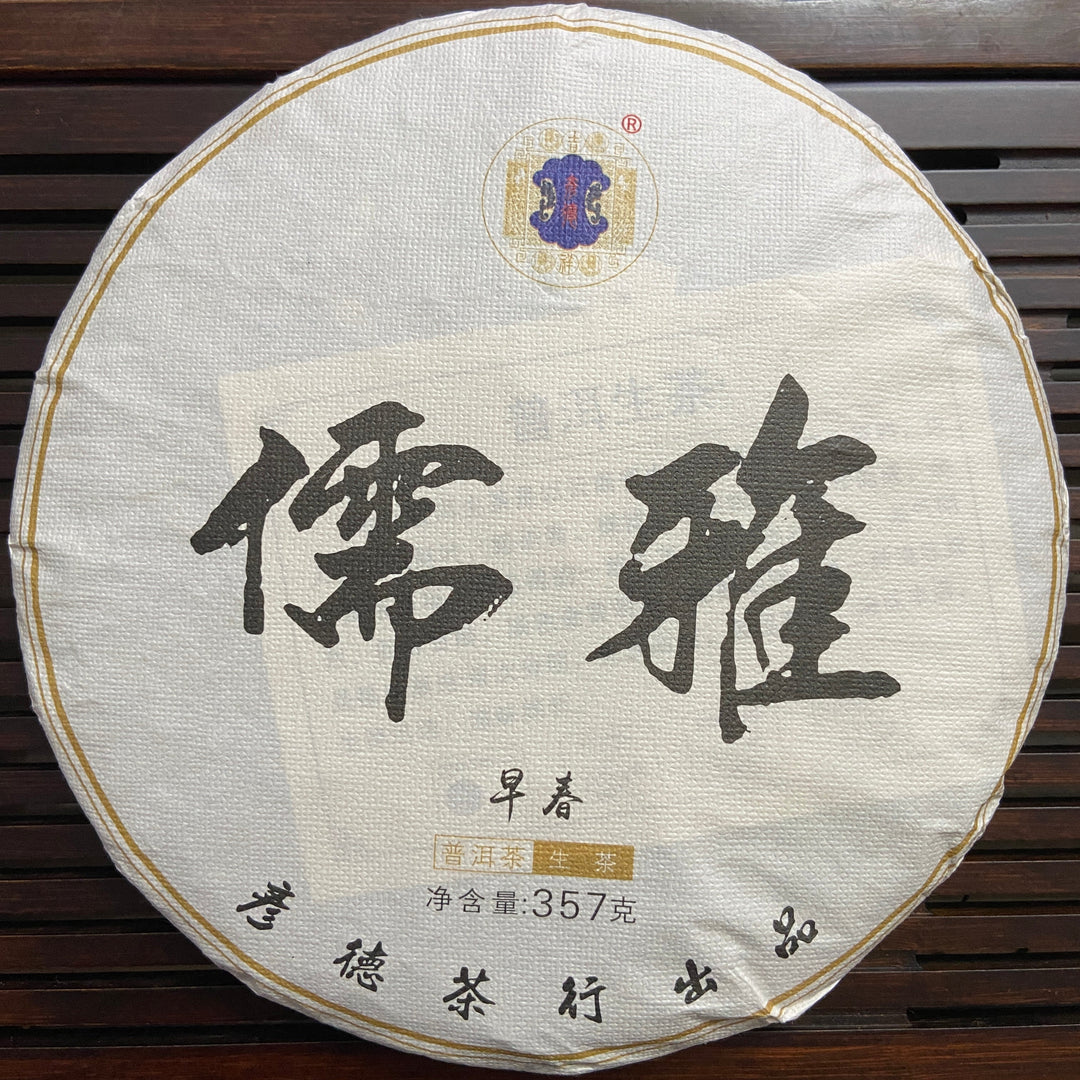 ®
吉
彦德
祥
儒雅
早春
普洱茶 生茶
净含量:357克
彦德茶行出品